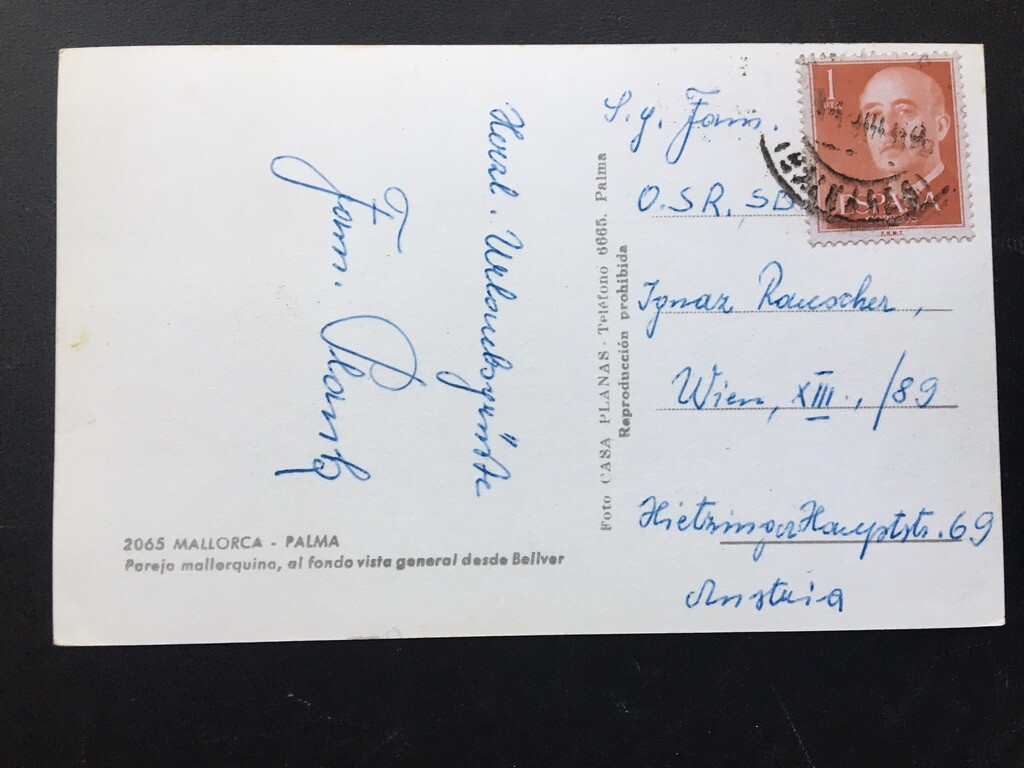 Herzl. Urlaubsgrüße
Fam. Plantz
2065 MALLORCA - PALMA
Pareja mallorquina, al fondo vista general desde Bellver
Foto CASA PLANAS - Teléfono 6665. Palma
Reproducción prohibida
S. g. Fam.
O.S.R. SB
Ignaz Rauscher,
Wien, XIII., /89
Hietzinger Hauptstr. 69
Austria
1
PTA
ESPAÑA
CORREOS
F.N.M.T.